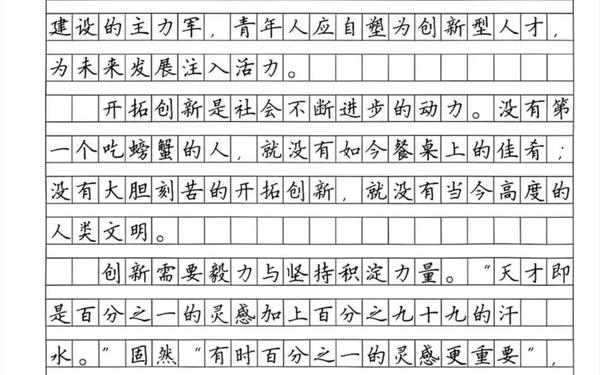 建设的主力军，青年人应自塑为创新型人才，
为未来发展注入活力。
开拓创新是社会不断进步的动力。没有第
一个吃螃蟹的人，就没有如今餐桌上的佳肴；
没有大胆刻苦的开拓创新，就没有当今高度的
人类文明。
创新需要毅力与坚持积淀力量。“天才即
是百分之一的灵感加上百分之九十九的汗
水。”固然“有时百分之一的灵感更重要”，